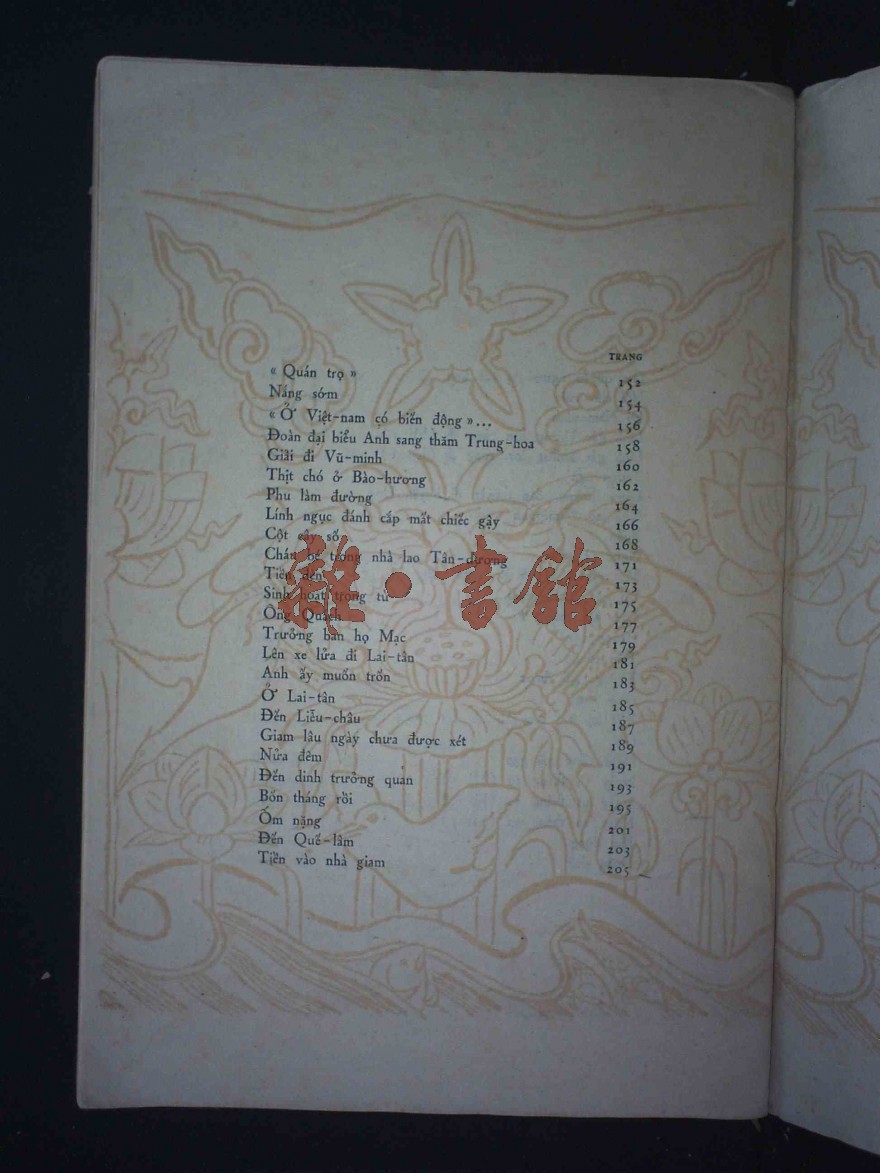 TRANG
« Quán trọ » 152
Nắng sớm 154
« Ở Việt-nam có biến động »... 156
Đoàn đại biểu Anh sang thăm Trung-hoa 158
Giải đi Vũ-minh 160
Thịt chó ở Bào-hương 162
Phu làm đường 164
Lính ngục đánh cắp mất chiếc gậy 166
Cột cây số 168
Cháu bé trong nhà lao Tân-dương 171
Tiền đèn 173
Sinh hoạt trong tù 175
Ông Quách 177
Trưởng ban họ Mạc 179
Lên xe lửa đi Lai-tân 181
Anh ấy muốn trốn 183
Ở Lai-tân 185
Đến Liễu-châu 187
Giam lâu ngày chưa được xét 189
Nửa đêm 191
Đến dinh trưởng quan 193
Bốn tháng rồi 195
Ốm nặng 201
Đến Quế-lâm 203
Tiền vào nhà giam 205
雜·書館